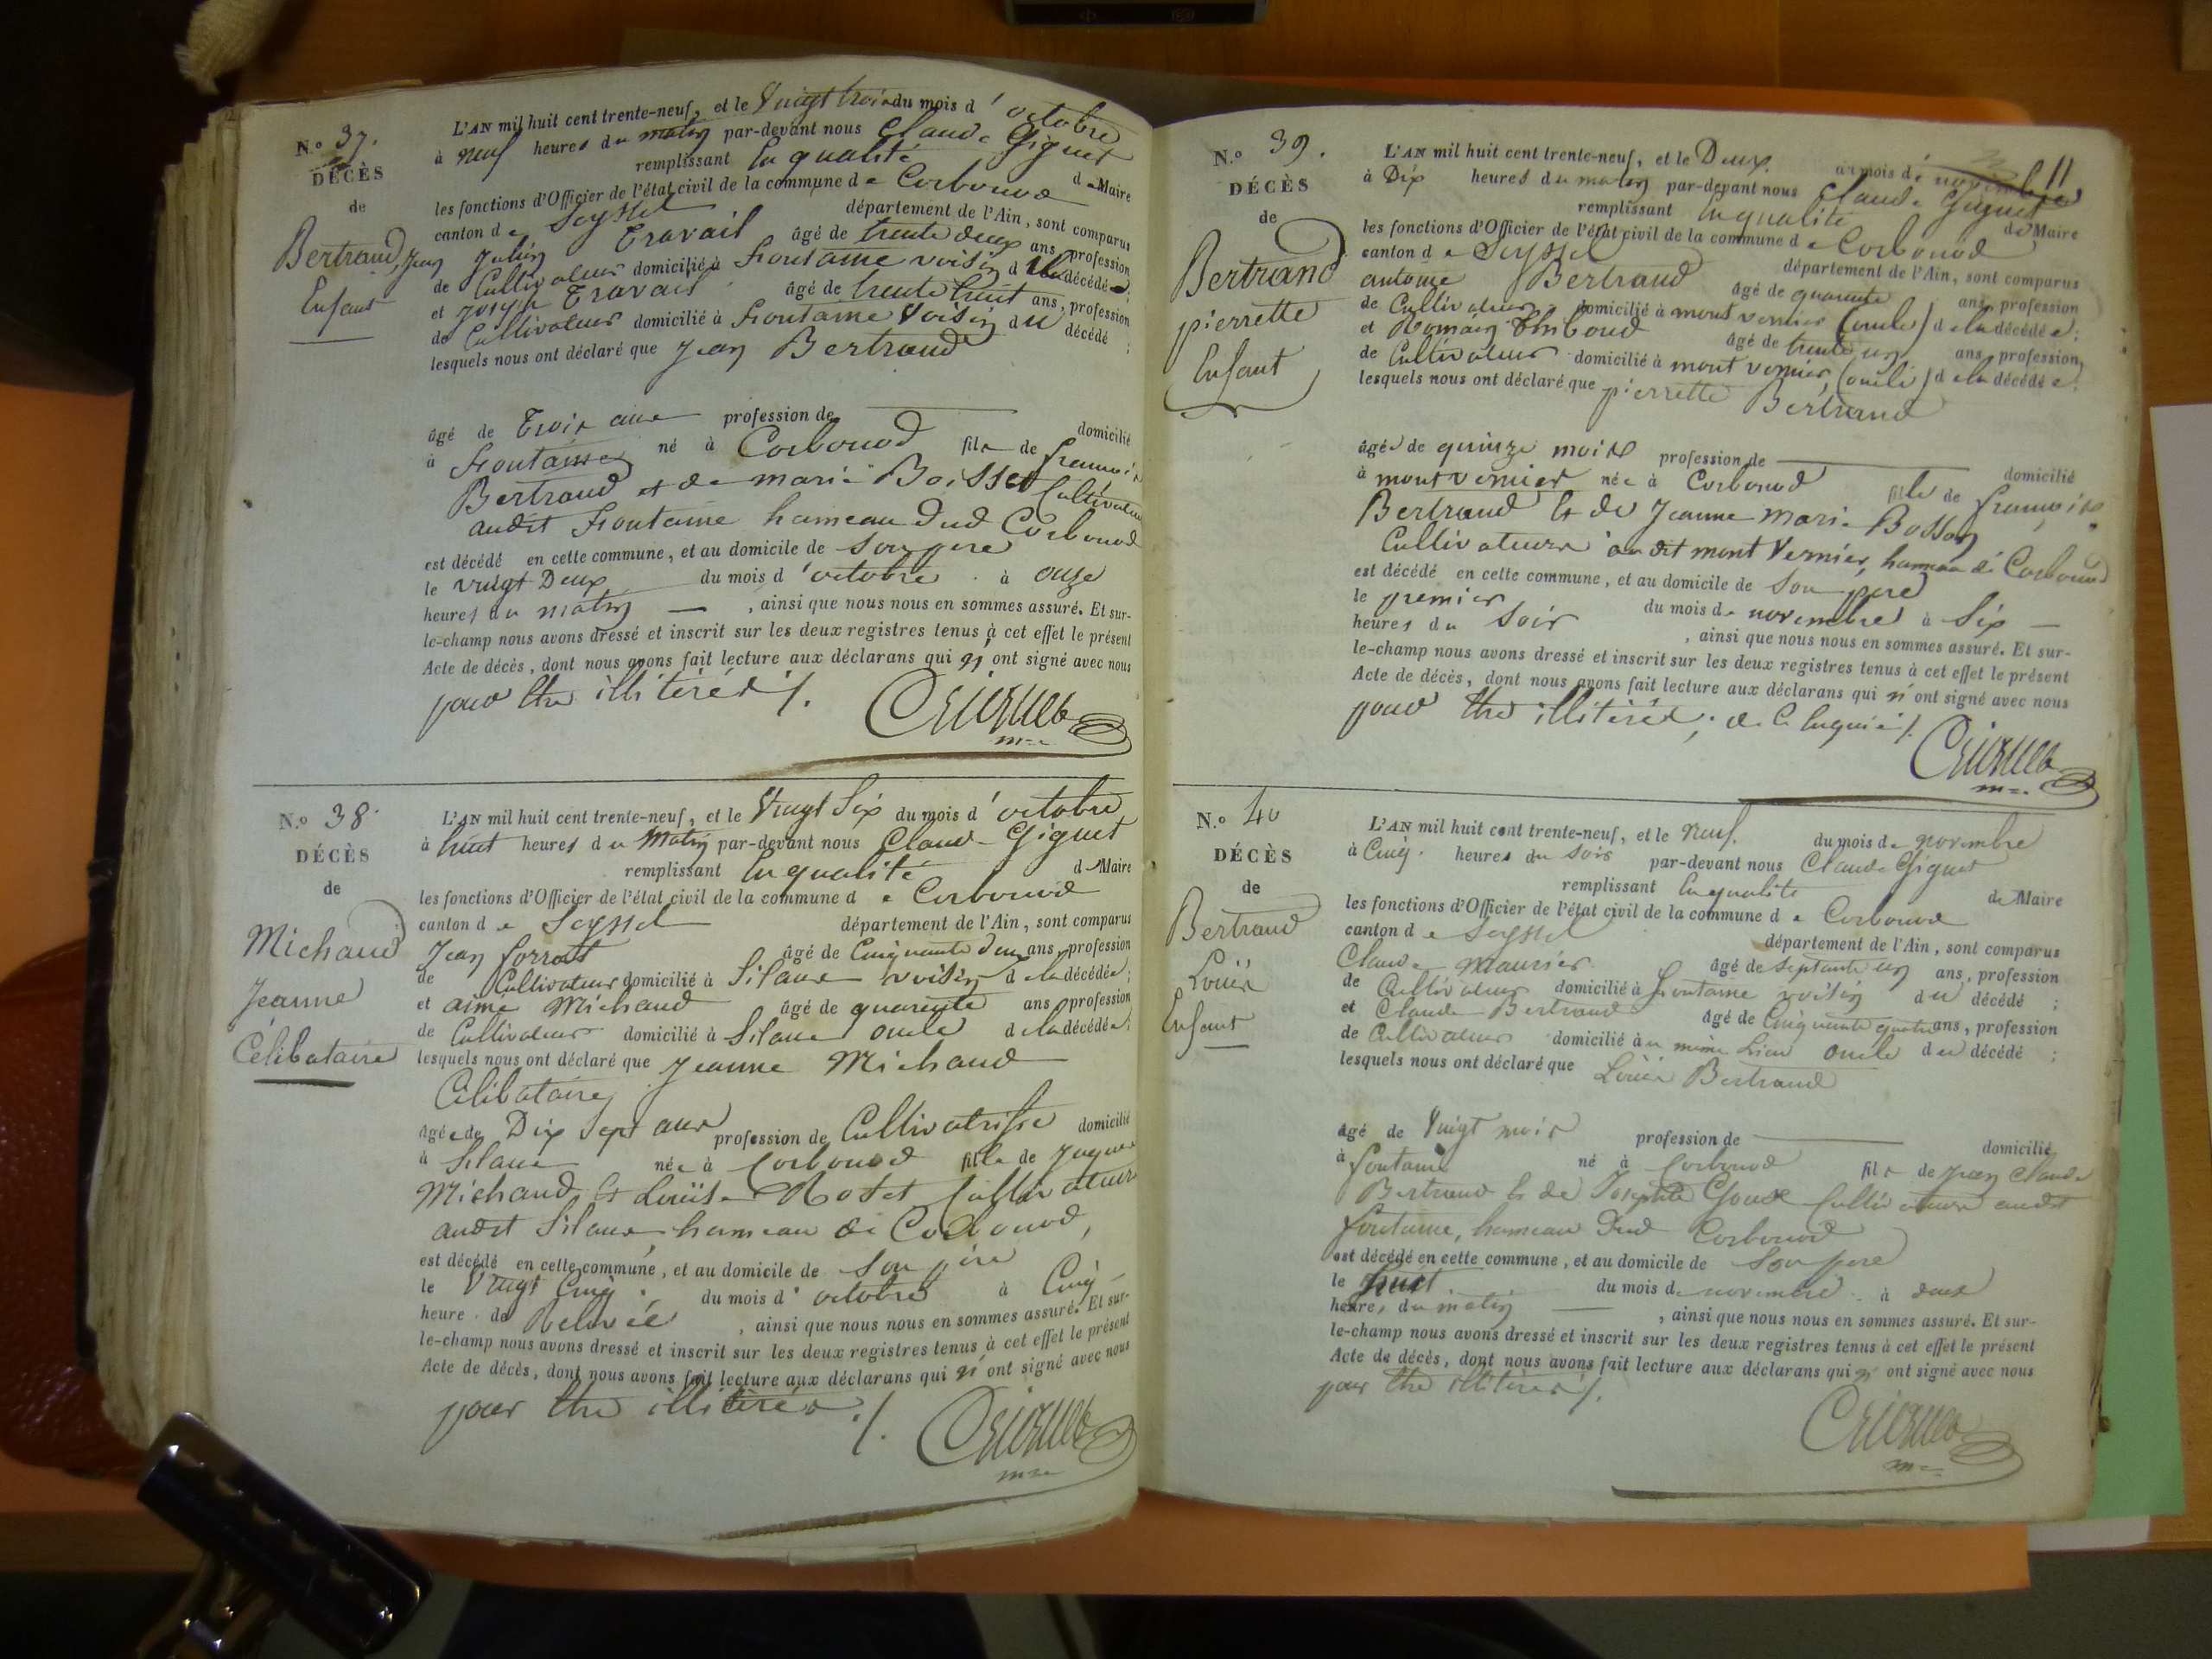 N.o 37.
DÉCÈS
de
Bertrand, Jean
Enfant
L'AN mil huit cent trente-neuf, et le Vingt trois du mois d'octobre
à neuf heures du matin par-devant nous Claude Giguet
remplissant en qualité de Maire
les fonctions d'Officier de l'état civil de la commune de Corbonod
canton de Seyssel département de l'Ain, sont comparus
Julien Travail âgé de trente deux ans, profession
de Cultivateur domicilié à Fontaine voisin du décédé ;
et joseph Travail âgé de trente huit ans, profession
de Cultivateur domicilié à Fontaine Voisin du décédé ;
lesquels nous ont déclaré que Jean Bertrand
âgé de Trois ans profession de domicilié
à Fontaine né à Corbonod fils de françois
Bertrand et de marie Boisset Cultivateurs
audit Fontaine hameau dud Corbonod
est décédé en cette commune, et au domicile de son pere
le vingt Deux du mois d'octobre à onze
heures du matin , ainsi que nous nous en sommes assuré. Et sur-
le-champ nous avons dressé et inscrit sur les deux registres tenus à cet effet le présent
Acte de décès, dont nous avons fait lecture aux déclarans qui n'ont signé avec nous
pour être illitérés ./.
Giguet
N.o 38.
DÉCÈS
de
Michaud
Jeanne
Célibataire
L'AN mil huit cent trente-neuf, et le Vingt Six du mois d'octobre
à huit heures du matin par-devant nous Claude Giguet
remplissant en qualité de Maire
les fonctions d'Officier de l'état civil de la commune de Corbonod
canton de Seyssel département de l'Ain, sont comparus
Jean âgé de Cinquante deux ans, profession
de Cultivateur domicilié à Silans voisin de la décédée ;
et aimé Michaud âgé de quarente ans, profession
de Cultivateur domicilié à Silans oncle de la décédée ;
lesquels nous ont déclaré que Jeanne Michaud
Célibataire
âgée de Dix Sept ans profession de Cultivatrisse domicilié
à Silans née à Corbonod fille de Jaques
Michaud & Louïse Rotet Cultivateurs
audit Silans, hameau de Corbonod,
est décédé en cette commune, et au domicile de son père
le Vingt Cinq du mois d'octobre à Cinq
heure de Relevée , ainsi que nous nous en sommes assuré. Et sur-
le-champ nous avons dressé et inscrit sur les deux registres tenus à cet effet le présent
Acte de décès, dont nous avons fait lecture aux déclarans qui n'ont signé avec nous
pour être illitérés ./.
Giguet
11
N.o 39.
DÉCÈS
de
Bertrand
pierrette
Enfant
L'AN mil huit cent trente-neuf, et le Deux du mois de novembre
à Dix heures du matin par-devant nous Claude Giguet
remplissant en qualité de Maire
les fonctions d'Officier de l'état civil de la commune de Corbonod
canton de Seyssel département de l'Ain, sont comparus
antoine Bertrand âgé de quarante ans, profession
de Cultivateur domicilié à mont vernier (oncle) de la décédée ;
et Romain Thiboud âgé de trente un ans, profession
de Cultivateur domicilié à mont vernier, (oncle) de la décédée ;
lesquels nous ont déclaré que pierrette Bertrand
âgé de quinze mois profession de domicilié
à mont vernier née à Corbonod fille de françois
Bertrand & de Jeanne Marie Bosson
Cultivateurs audit mont Vernier, hameau de Corbonod
est décédé en cette commune, et au domicile de son pere
le premier du mois de novembre à Six
heures du soir , ainsi que nous nous en sommes assuré. Et sur-
le-champ nous avons dressé et inscrit sur les deux registres tenus à cet effet le présent
Acte de décès, dont nous avons fait lecture aux déclarans qui n'ont signé avec nous
pour être illitérés, de ce Enquis ./.
Giguet
N.o 40
DÉCÈS
de
Bertrand
Louïs
Enfant
L'AN mil huit cent trente-neuf, et le neuf du mois de novembre
à Cinq heures du soir par-devant nous Claude Giguet
remplissant en qualité de Maire
les fonctions d'Officier de l'état civil de la commune de Corbonod
canton de Seyssel département de l'Ain, sont comparus
Claude Maurier âgé de septante un ans, profession
de Cultivateur domicilié à Fontaine voisin du décédé ;
et Claude Bertrand âgé de Cinquante quatre ans, profession
de Cultivateur domicilié au même Lieu oncle du décédé ;
lesquels nous ont déclaré que Louïs Bertrand
âgé de Vingt mois profession de domicilié
à fontaine né à Corbonod fils de Jean Claude
Bertrand & de Josephte Cultivateurs audit
fontaine, hameau dud Corbonod
est décédé en cette commune, et au domicile de son pere
le huit du mois de novembre à deux
heures du matin , ainsi que nous nous en sommes assuré. Et sur-
le-champ nous avons dressé et inscrit sur les deux registres tenus à cet effet le présent
Acte de décès, dont nous avons fait lecture aux déclarans qui n'ont signé avec nous
pour être illitérés ./.
Giguet